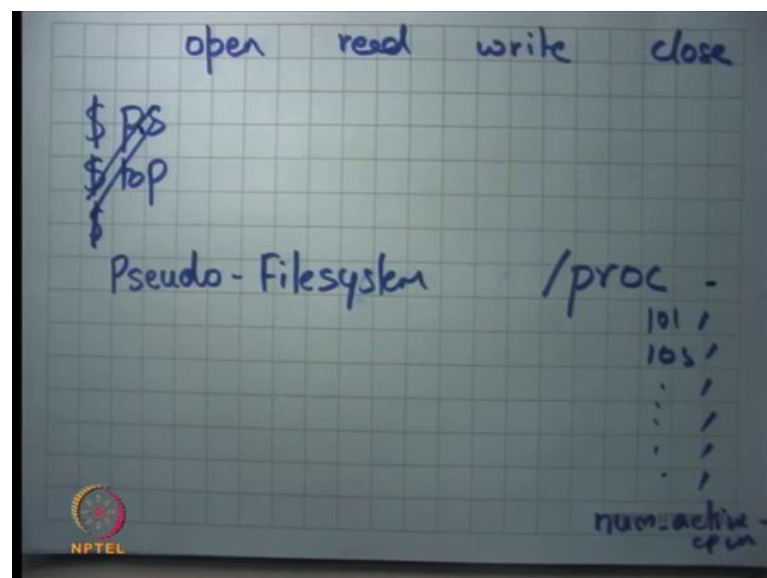 open read write close
$ ps
$ top
$
Pseudo-Filesystem /proc -
101 /
105 /
num_active-
cpus
NPTEL